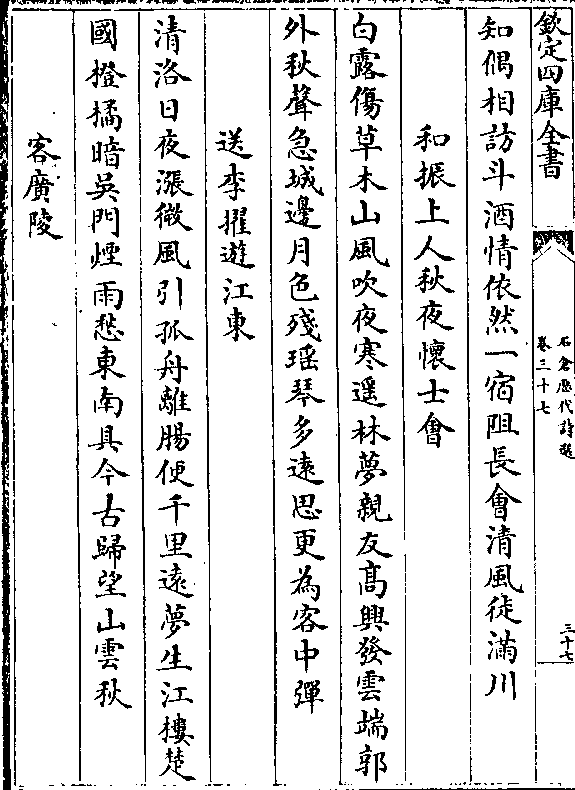 欽定四庫全書
石倉歴代詩選
卷三十七
三十七
知偶相訪斗酒情依然一宿阻長會清風徒滿川
和振上人秋夜懷士會
白露傷草木山風吹夜寒遥林夢親友髙興發雲端郭
外秋聲急城邊月色殘瑶琴多逺思更為客中彈
送李擢遊江東
清洛日夜漲微風引孤舟離腸便千里逺夢生江樓楚
國橙橘暗吳門煙雨愁東南具今古歸望山雲秋
客廣陵